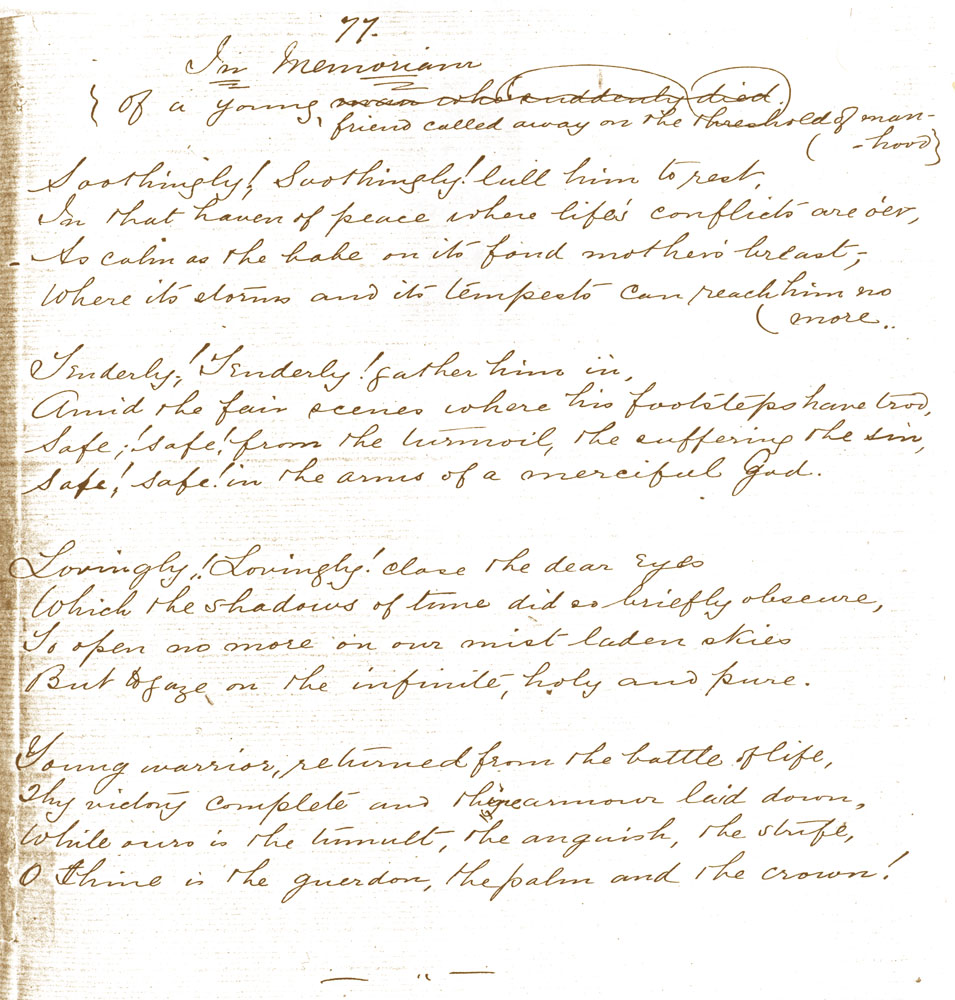 77.
In Memoriam
{ Of a young man who suddenly died.
friend called away on the threshold of man-
( -hood}
Soothingly! Soothingly! lull him to rest,
In that haven of peace where life's conflicts are o'er,
- As calm as the babe on its fond mother's breast,-
Where its storms and its tempests can reach him no
( more..
Tenderly,! Tenderly! gather him in,
Amid the fair scenes where his footsteps have trod,
Safe,! safe! from the turmoil, the suffering the sin,
Safe! safe! in the arms of a merciful God.
Lovingly,! Lovingly! close the dear Eyes
Which the shadows of time did so briefly obscure,
To open no more on our mist laden skies
But to gaze on the infinite, holy and pure.
Young warrior, returned from the battle of life,
Thy victory complete and thine armour laid down,
While ours is the tumult, the anguish, the strife,
O thine is the guerdon, the palm and the crown!
— " —